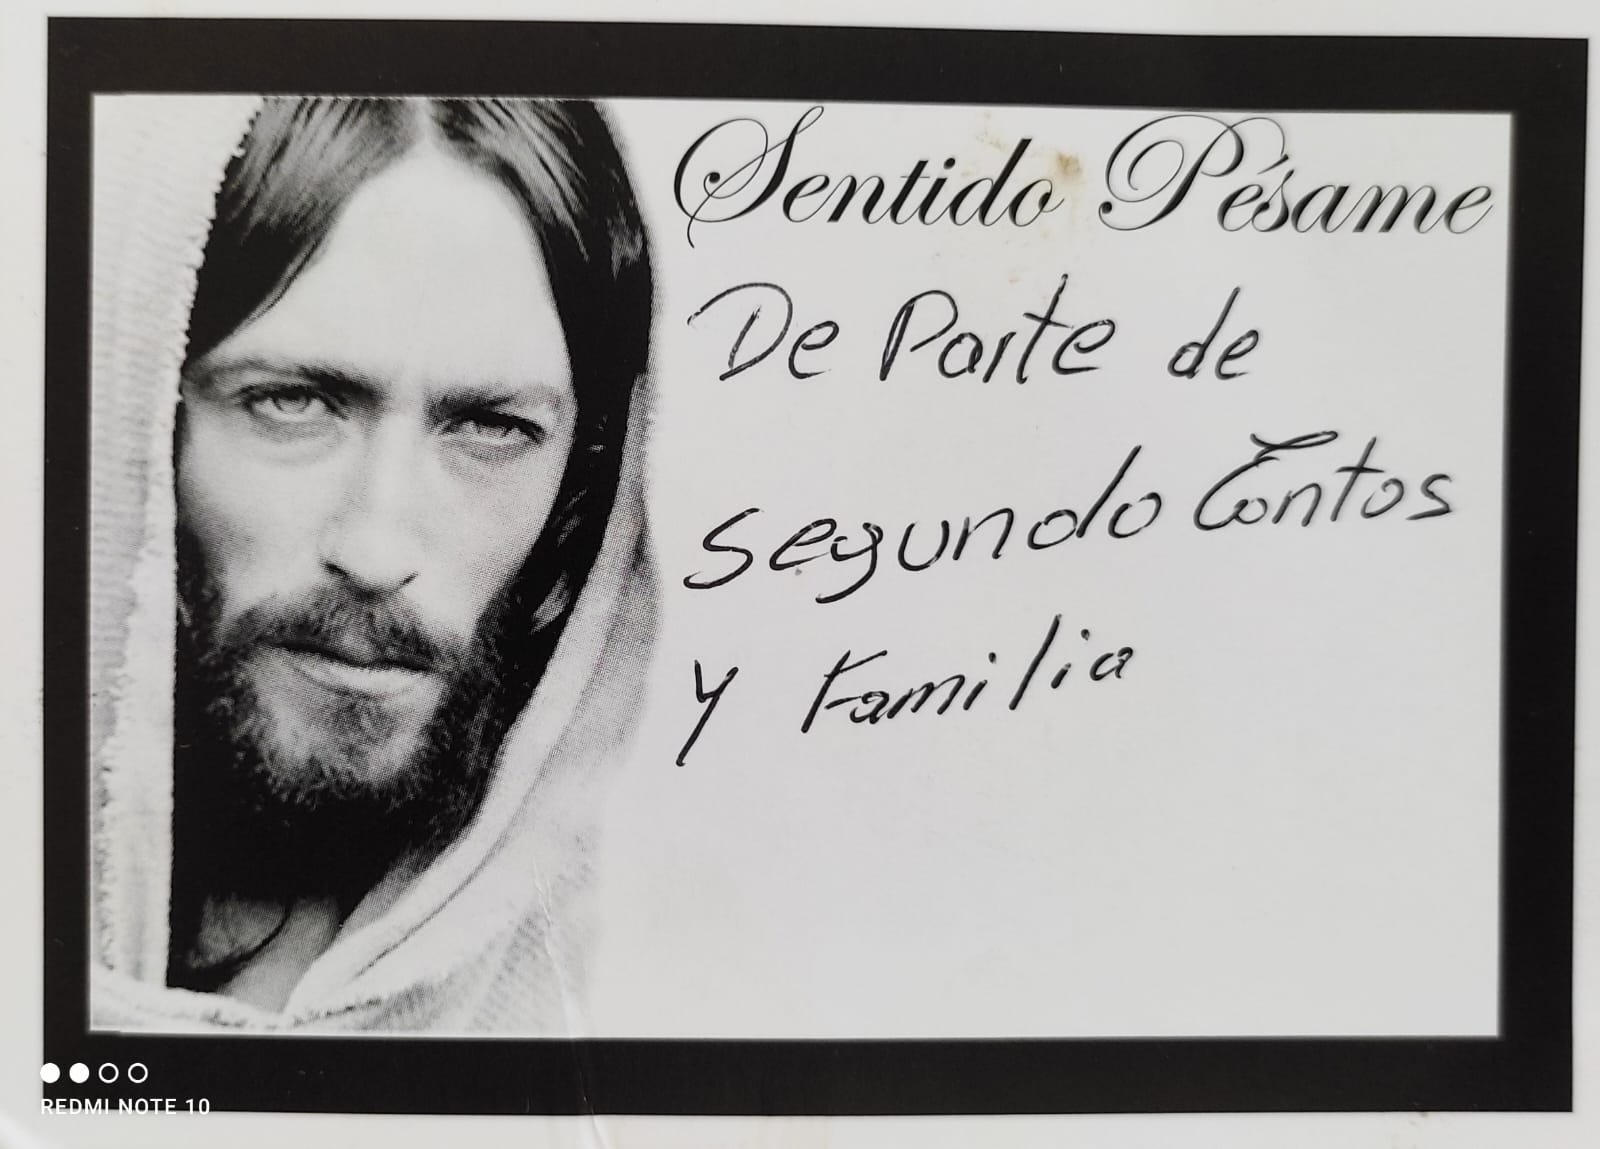 Sentido Pésame
De Parte de
segundo Contos
y Familia
REDMI NOTE 10